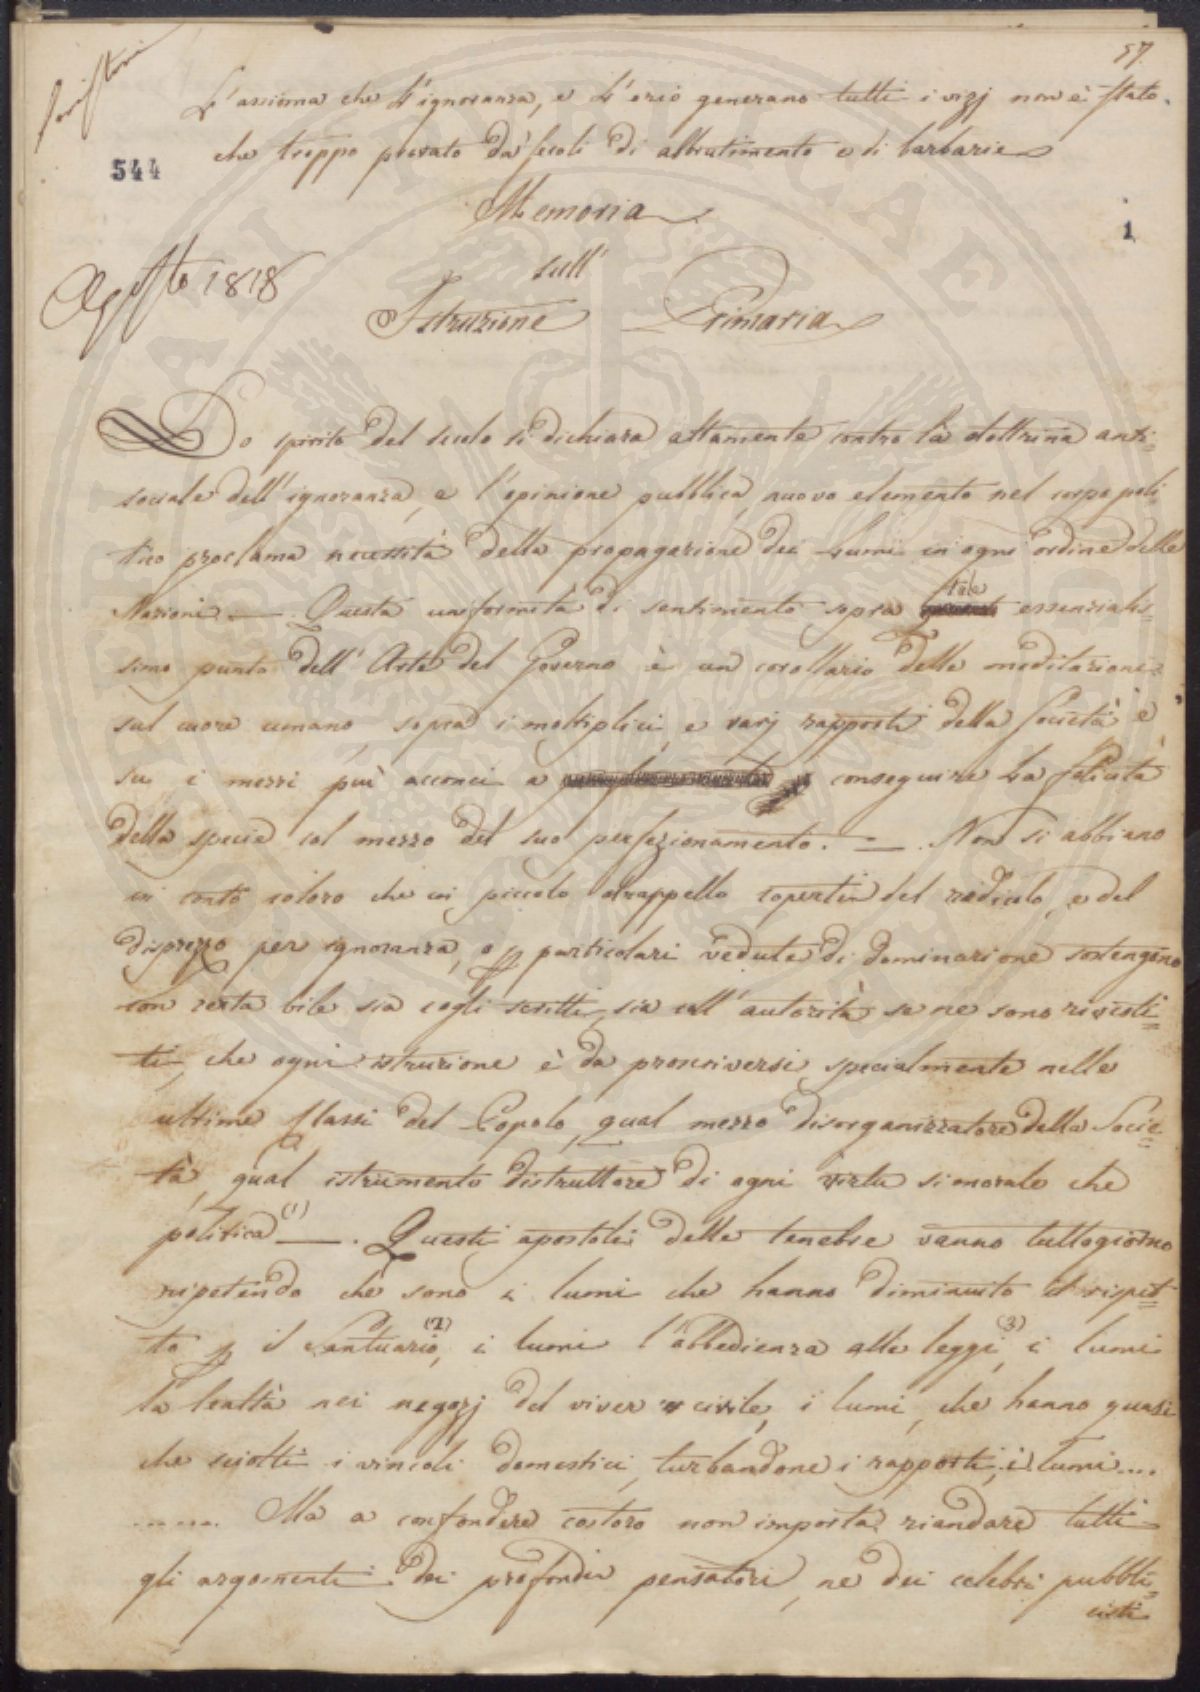 57
L'assioma che l'ignoranza, e l'ozio generano tutti i vizj non è stato
che troppo provato da' secoli di abbrutimento e di barbarie
544
Memoria
1
sull'
Agosto 1818
Istruzione Primaria
Lo spirito del secolo si dichiara altamente contro la dottrina anti=
sociale dell'ignoranza, e l'opinione pubblica, nuovo elemento nel corpo poli=
tico proclama necessità della propagazione dei lumi in ogni ordine delle
Nazioni —. Questa uniformità di sentimento sopra tale essenzialis=
simo punto dell'Arte del Governo è un corollario delle meditazioni
sul cuore umano, sopra i moltiplici, e varj rapporti della Società e
su i mezzi più acconci a conseguire la felicità
della specie col mezzo del suo perfezionamento. —. Non si abbiano
in conto coloro che in piccolo drappello coperti del ridicolo, e del
disprezzo per ignoranza, o p particolari vedute di dominazione sostengono
con certa bile sia cogli scritti, sia coll'autorità se ne sono rivesti=
ti, che ogni istruzione è da proscriversi specialmente nelle
ultime classi del Popolo, qual mezzo disorganizzatore della Socie=
tà, qual istrumento distruttore di ogni virtù si morale che
politica (1) —. Questi apostoli delle tenebre vanno tuttogiorno
ripetendo che sono i lumi che hanno diminuito il rispet=
to p il Santuario (2), i lumi l'obbedienza alle leggi (3), i lumi
la lealtà nei negozj del viver civile, i lumi, che hanno quasi
che sciolti i vincoli domestici, turbandone i rapporti, i lumi....
...... Ma a confondere costoro non importa riandare tutti
gli argomenti dei profondi pensatori, ne dei celebri pubbli=
cisti